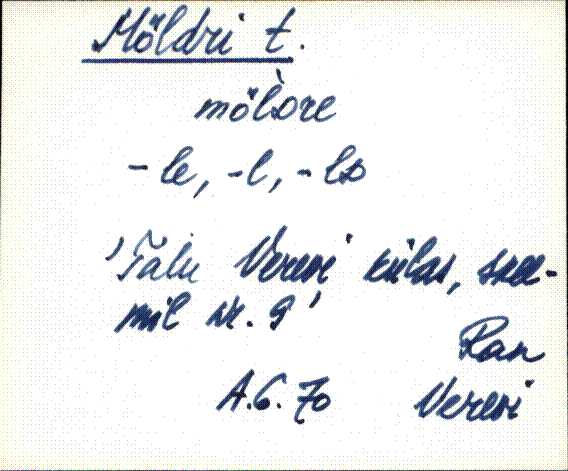 Möldri t.
mö̀lᴅre
-le, -l, -ls
'Talu Verevi külas,
mil nr. 9'
Ran
A.G. 70 Verevi